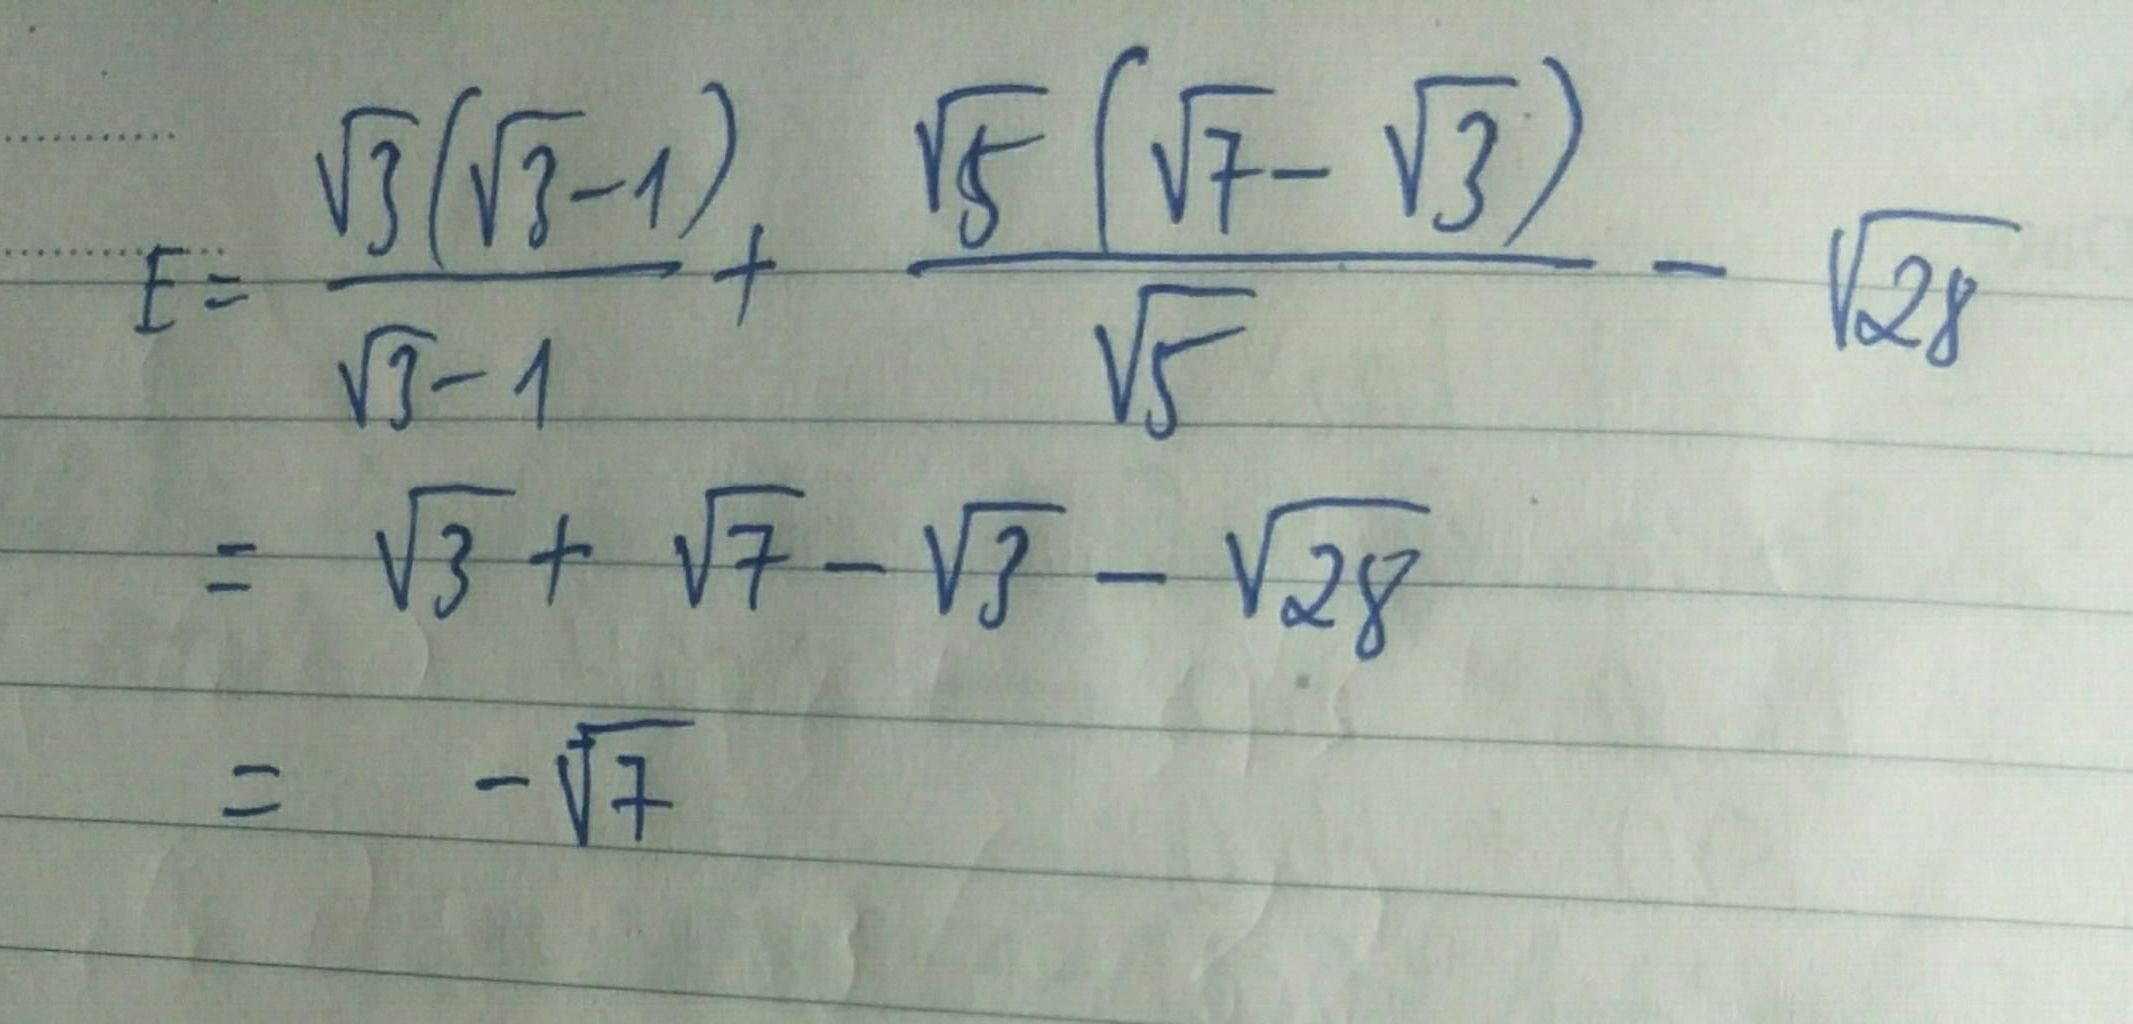 E = √3(√3-1)/(√3-1) + √5(√7-√3)/√5 - √28
= √3 + √7 - √3 - √28
= -√7